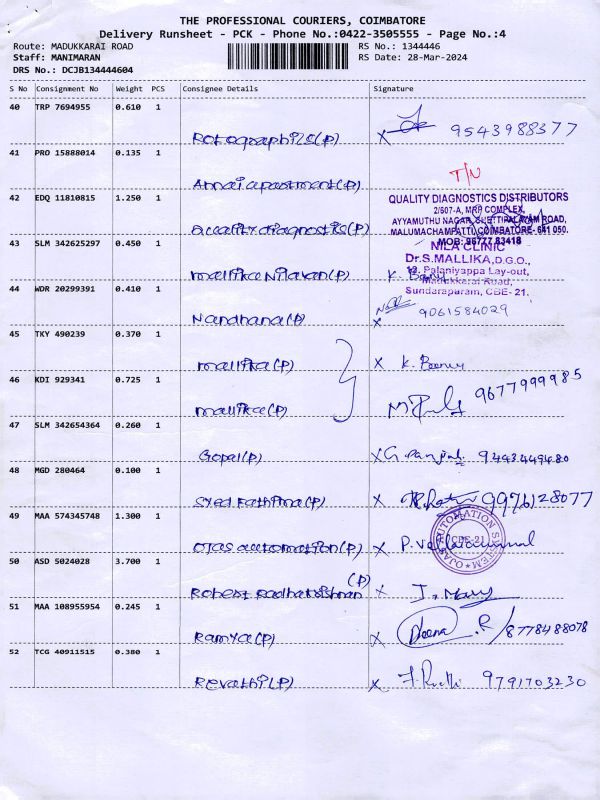 THE PROFESSIONAL COURIERS, COIMBATORE
Delivery Runsheet - PCK - Phone No.:0422-3505555 - Page No.:4
Route: MADUKKARAI ROAD
RS No.: 1344446
Staff: MANIMARAN
RS Date: 28-Mar-2024
DRS No.: DCJB134444604
S No Consignment No Weight PCS Consignee Details Signature
40 TRP 7694955 0.610 1
Rotographils(p) x 9543988377
41 PRO 15888014 0.135 1
T/N
Annai apartment(p)
42 EDQ 11810815 1.250 1
QUALITY DIAGNOSTICS DISTRIBUTORS
2/607-A, MRP COMPLEX,
AYYAMUTHU NAGAR, CHETTIPALAYAM ROAD,
MALUMACHAMPATTI, COIMBATORE- 641 050.
MOB: 96777 83418
diagnostis(p)
43 SLM 342625297 0.450 1
NILA CLINIC
Dr.S.MALLIKA,D.G.O.,
12, Palaniyappa Lay-out,
Madukkarai Road,
Sundarapuram, CBE- 21.
mallika Nilavan(p) K.
44 WDR 20299391 0.410 1
Nandhana(p) x 9061584029
45 TKY 490239 0.370 1
mallika(p) x K.
46 KDI 929341 0.725 1
mallika(p) 9677999985
47 SLM 342654364 0.260 1
Gopal(p) x G. 9443449480
48 MGD 280464 0.100 1
Syed Fathima(p) x 9976128077
49 MAA 574345748 1.300 1
OJAS AUTOMATION SYSTEM
CBE-21
Ojas automation(p) x P.
50 ASD 5024028 3.700 1
Robert Radhakrishnan (p) x J. Mary
51 MAA 108955954 0.245 1
Ramya(p) x Deena .R /8778488078
52 TCG 40911515 0.380 1
Revathi(p) x 9791703230